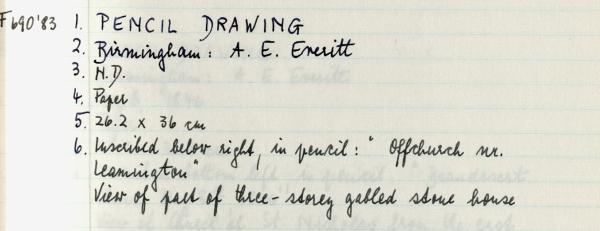 F690'83 1. PENCIL DRAWING
2. Birmingham: A. E. Everitt
3. N.D.
4. Paper
5. 26.2 x 36 cm
6. Inscribed below right, in pencil: "Offchurch nr.
Leamington"
View of part of three-storey gabled stone house